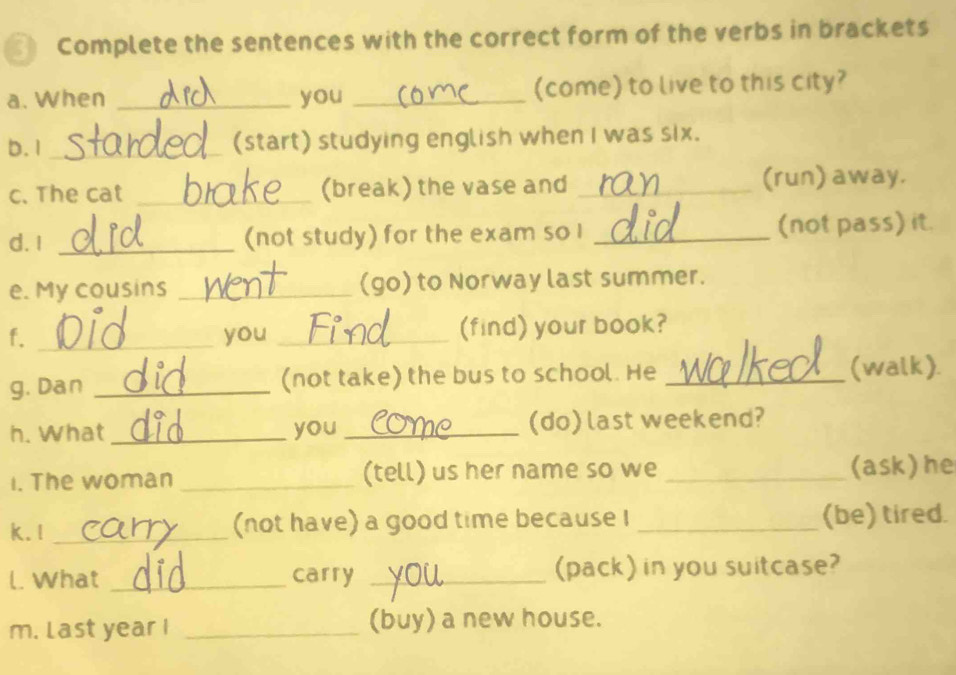 3 Complete the sentences with the correct form of the verbs in brackets
a. When did you come (come) to live to this city?
b. I standed (start) studying english when I was six.
c. The cat brake (break) the vase and ran (run) away.
d. I did (not study) for the exam so I did (not pass) it.
e. My cousins went (go) to Norway last summer.
f. Did you Find (find) your book?
g. Dan did (not take) the bus to school. He walked (walk).
h. What did you come (do) last weekend?
i. The woman ____________ (tell) us her name so we ____________ (ask) he
k. I carry (not have) a good time because I ____________ (be) tired.
l. What did carry you (pack) in you suitcase?
m. Last year I ____________ (buy) a new house.